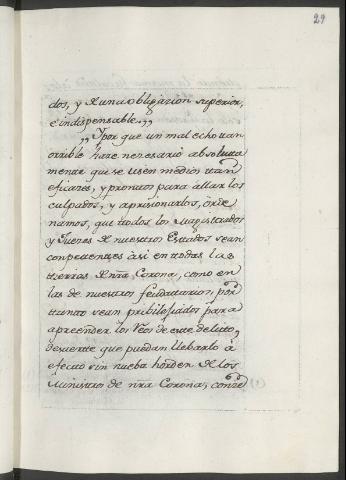 29
dos, y de una obligazion superior,
è indispensable.,,
,,Y por que un mal echo tan
orrible haze nenesario absoluta
mente que se usen medios tan
eficazes, y promtos para allar los
culpados, y aprisionarlos, orde
namos, que todos los Magistrados
y Juezes de nuestros Estados sean
conpetentes asi en todas las
tierras de nra Corona, como en
las de nuestros feudatarios, por
tanto sean pribilejiados para
apreender los Reos de este delito,
de suerte que puedan llebarlo à
efecto sin nueba horden de los
Ministros de nra Corona; conze